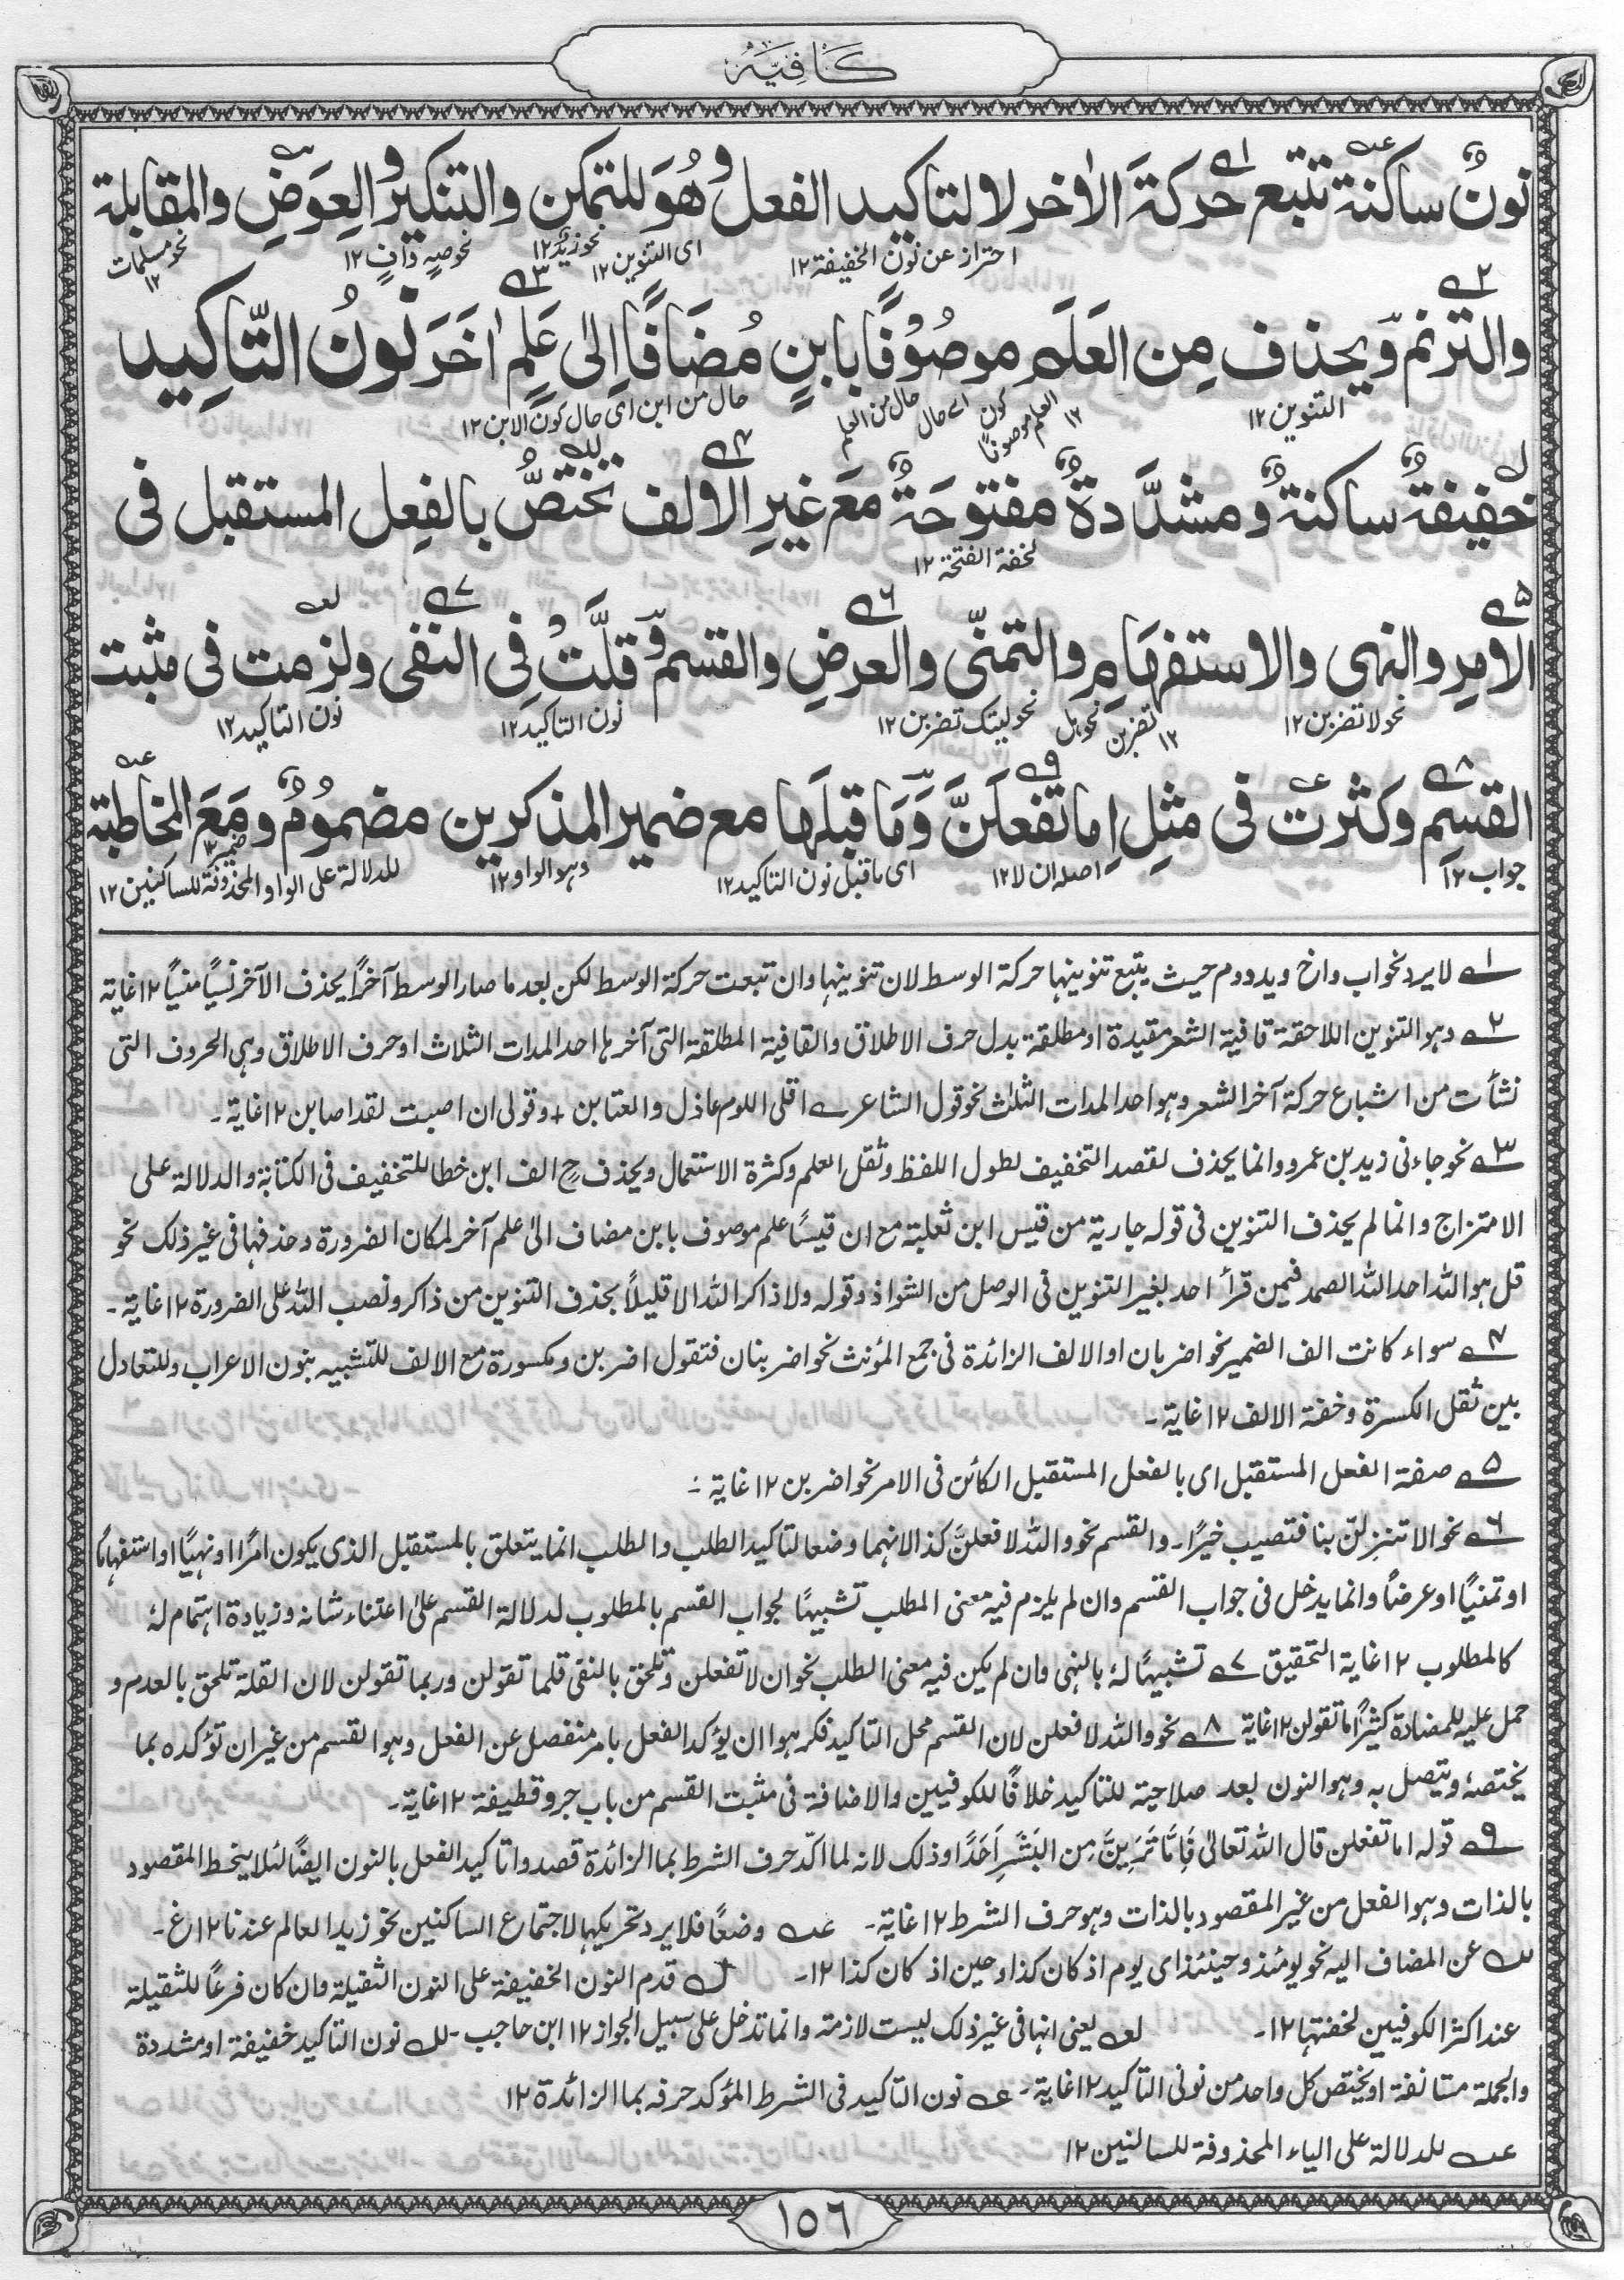 كَافِيَة
نونٌ ساكنة تتبع حركةَ الاٰخر لا لتاكيد الفعل وهُوَ للتمكن والتنكير والعِوَضِ والمقابلة
احتراز عن نون الخفيفة ١٢
اى التنوين ١٢
نحو زيدٌ ١٢
نحو صهٍ وافٍ ١٢
نحو مسلمات ١٢
والترنم ويحذف مِن العَلَمِ موصُوْفًا بابنٍ مُضَافًا اِلىٰ عَلَمٍ اٰخَرَ نُونُ التّاكِيد
التنوين ١٢
حال من العلم اے حال كون العلم موصوفًا ١٢
حال من ابن اى حال كون الابن ١٢
خفيفةٌ ساكنةٌ ومشدَّدةٌ مفتوحَةٌ مَعَ غيرِ الالف تختصُّ بالفِعل المستقبل فى
لخفة الفتحة ١٢
الامرِ والنهى والاستفهَامِ والتمنّى والعرضِ والقسم وقلَّتْ فِى النفى ولزمت فى مثبت
نحو لا تضربن ١٢
نحو هل تضربن ١٢
نحو ليتك تضربن ١٢
نون التاكيد ١٢
نون التاكيد ١٢
القسم وكثرت فى مثلِ اِما تفعلَنَّ وَمَا قبلَها مع ضمير المذكرين مضمُومٌ ومَعَ المخاطبة
جواب ١٢
اصله ان لا ١٢
اى ما قبل نون التاكيد ١٢
وہو الواو ١٢
للدلالة على الواو المحذوفة للساكنين ١٢
ضمير ١٢
١ے لا يرد نحو اب واخ ويد ودم حيث يتبع تنوينها حركة الوسط لان تنوينها وان تبعت حركة الوسط لكن بعد ما صار الوسط آخرًا يحذف الآخر نسيًا منسيًا ١٢ غاية
٢ے وہو التنوين اللاحقة قافية الشعر مقيدة او مطلقة بدل حرف الاطلاق والقافية المطلقة التى آخرها احد المدات الثلاث او حرف الاطلاق وہى الحروف التى
نشأت من اشباع حركة آخر الشعر وہو احد المدات الثلٰث نحو قول الشاعر ے اقلى اللوم عاذل والعتابن + وقولى ان اصبت لقد اصابن ١٢ غاية۔
٣ے نحو جاءنى زيد بن عمرو وانما يحذف لقصد التخفيف لطول اللفظ وثقل العلم وكثرة الاستعمال ويحذف ح الف ابن خطا للتخفيف فى الكتابة والدلالة على
الامتزاج وانما لم يحذف التنوين فى قوله جارية من قيس ابن ثعلبة مع ان قيسًا علم موصوف بابن مضاف الىٰ علم آخر لمكان الضرورة وحذفها فى غير ذلك نحو
قل ہو اللہ احد اللہ الصمد فيمن قرأ احد بغير التنوين فى الوصل من الشواذ وقوله ولا ذاكر اللہ الا قليلاً بحذف التنوين من ذاكر ونصب اللہ على الضرورة ١٢ غاية۔
٤ے سواء كانت الف الضمير نحو اضربان او الالف الزائدة فى جمع المؤنث نحو اضربنان فتقول اضربن ومكسورة مع الالف للتشبيه بنون الاعراب وللتعادل
بين ثقل الكسرة وخفة الالف ١٢ غاية۔
٥ے صفة الفعل المستقبل اى بالفعل المستقبل الكائن فى الامر نحو اضربن ١٢ غاية ۔:
٦ے نحو الا تنزلنّ بنا فتصيب خيرًا۔ والقسم نحو واللہ لافعلنَّ كذا لانہما وضعا لتاكيد الطلب والطلب انما يتعلق بالمستقبل الذى يكون امرًا او نہيًا او استفہامًا
او تمنيًا او عرضًا وانما يدخل فى جواب القسم وان لم يلزم فيه معنى الطلب تشبيہًا لجواب القسم بالمطلوب لدلالة القسم علىٰ اعتناء شانه وزيادة اہتمام لهٗ
كالمطلوب ١٢ غاية التحقيق ٧ے تشبيہًا لهٗ بالنہى وان لم يكن فيه معنى الطلب نحو ان لا تفعلن وتلحق بالنفى قلما تقولن وربما تقولن لان القلة تلحق بالعدم و
حمل عليه للمضادة كثيرًا ما تقولن ١٢ غاية ٨ے نحو واللہ لافعلن لان القسم محل التاكيد فكرہوا ان يؤكد الفعل بامر منفصل عن الفعل وہو القسم من غير ان تؤكده بما
يختصهٗ ويتصل به وہو النون بعد صلاحيته للتاكيد خلافًا للكوفيين والاضافة فى مثبت القسم من باب جرو قطيفة ١٢ غاية۔
٩ے قوله اما تفعلن قال اللہ تعالىٰ فَاِمَّا تَرَيِنَّ مِنَ البَشَرِ اَحَدًا وذلك لانه لما اكّد حرف الشرط بما الزائدة قصدوا تاكيد الفعل بالنون ايضًا لئلا ينحط المقصود
بالذات وہو الفعل من غير المقصود بالذات وہو حرف الشرط ١٢ غاية۔ عــہ وضعًا فلا يرد تحريكہا لاجتماع الساكنين نحو زيد العالم عندنا ١٢ غ۔
لــہ عن المضاف اليه نحو يومئذ وحينئذ اى يوم اذ كان كذا وحين اذ كان كذا ١٢۔ لــہ قدم النون الخفيفة على النون الثقيلة وان كان فرعًا للثقيلة
عند اكثر الكوفيين لخفتہا ١٢۔ لعــہ يعنى انہا فى غير ذلك ليست لازمة وانما تدخل على سبيل الجواز ١٢ ابن حاجب۔ للــہ نون التاكيد خفيفة او مشددة
والجملة مستانفة او يختص كل واحد من نونى التاكيد ١٢ غاية۔ عــہ نون التاكيد فى الشرط المؤكد حرفه بما الزائدة ١٢
عــہ للدلالة على الياء المحذوفة للساكنين ١٢
١٥٦